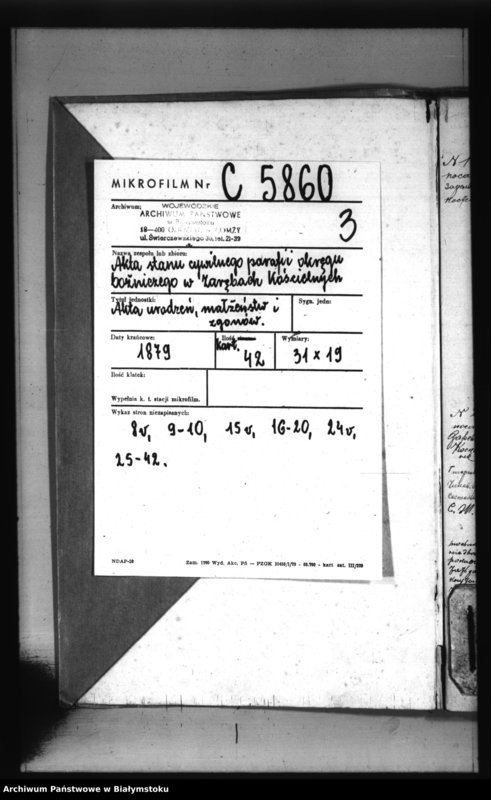 MIKROFILM Nr C 5860
Archiwum: WOJEWÓDZKIE
ARCHIWUM PAŃSTWOWE
w Białymstoku
18-400 ŁOMŻY
ul. Świerczewskiego 30, tel. 21-39
3
Nazwa zespołu lub zbioru:
Akta stanu cywilnego parafii okręgu
bożniczego w Zarębach Kościelnych
Tytuł jednostki:
Akta urodzeń, małżeństw i
zgonów.
Sygn. jedn:
Daty krańcowe:
1879
Ilość
kart.
42
Wymiary:
31 x 19
Ilość klatek:
Wypełnia k. t. stacji mikrofilm.
Wykaz stron niezapisanych:
8v, 9-10, 15v, 16-20, 24v,
25-42.
NDAP-50
Zam. 1790 Wyd. Akc. Pś. — PZGK
Archiwum Państwowe w Białymstoku